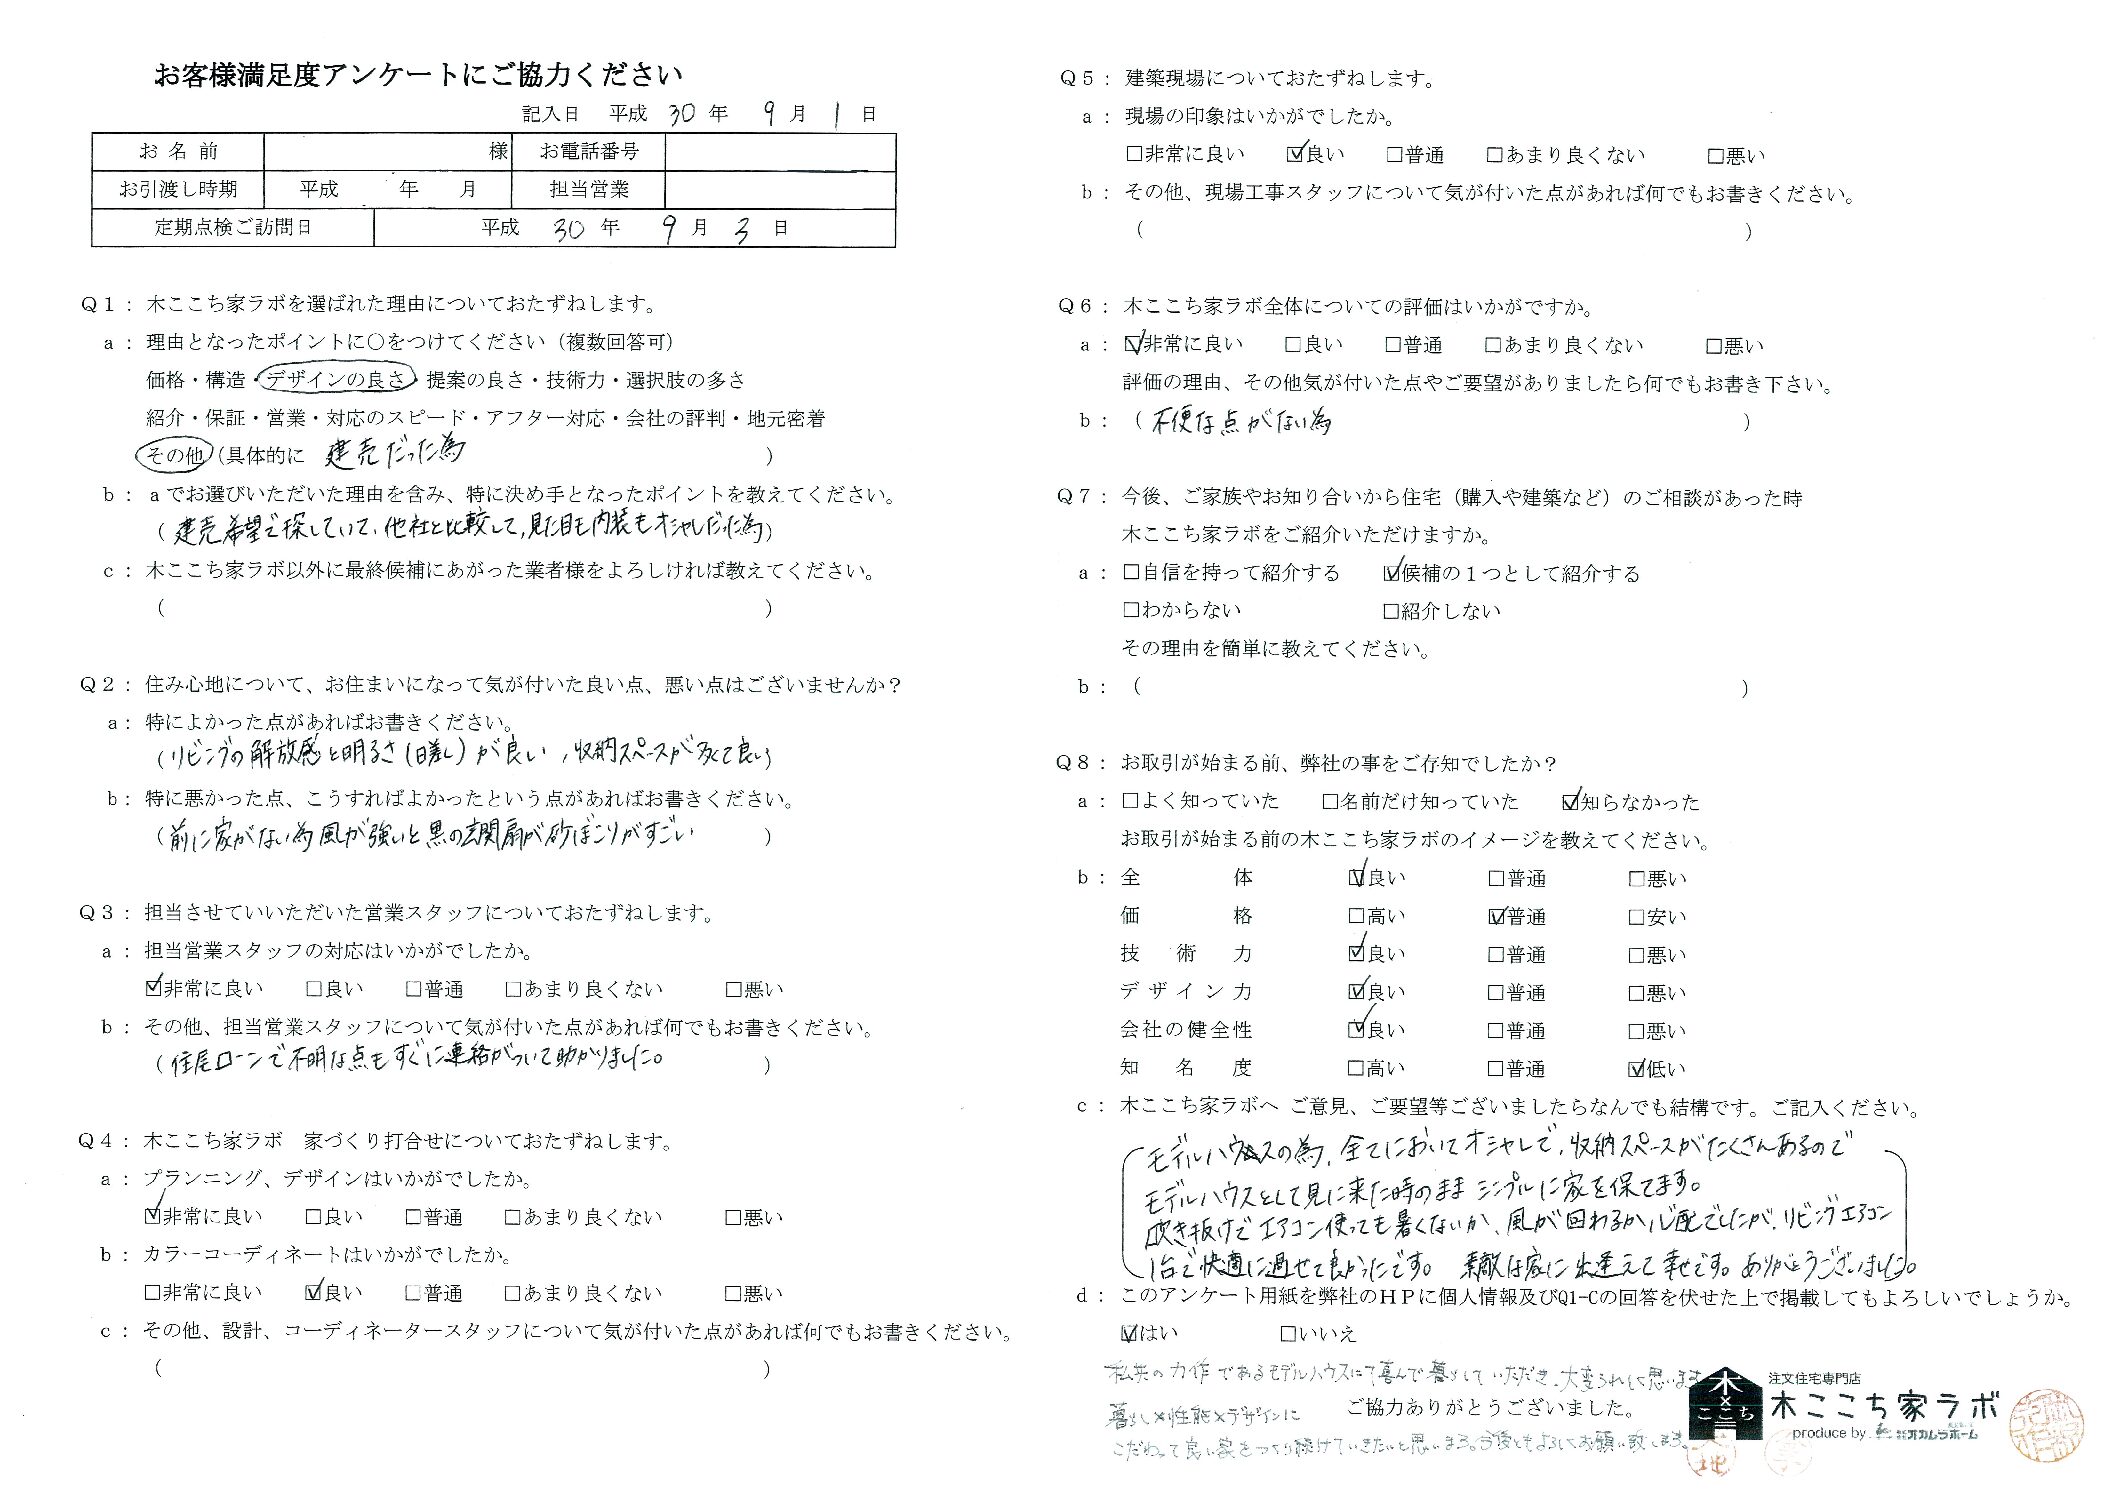 お客様満足度アンケートにご協力ください
記入日 平成 30 年 9 月 1 日
お名前 様 お電話番号
お引渡し時期 平成 年 月 担当営業
定期点検ご訪問日 平成 30 年 9 月 3 日
Q1: 木ここち家ラボを選ばれた理由についておたずねします。
a: 理由となったポイントに〇をつけてください（複数回答可）
価格・構造・デザインの良さ・提案の良さ・技術力・選択肢の多さ
紹介・保証・営業・対応のスピード・アフター対応・会社の評判・地元密着
その他（具体的に 建売だった為 ）
b: aでお選びいただいた理由を含み、特に決め手となったポイントを教えてください。
（建売希望で探していて、他社と比較して、見た目も内装もオシャレだった為）
c: 木ここち家ラボ以外に最終候補にあがった業者様をよろしければ教えてください。
（ ）
Q2: 住み心地について、お住まいになって気が付いた良い点、悪い点はございませんか？
a: 特によかった点があればお書きください。
（リビングの解放感と明るさ（日差し）が良い、収納スペースが多くて良い）
b: 特に悪かった点、こうすればよかったという点があればお書きください。
（前に家がない為風が強いと黒の玄関扇が砂ぼこりがすごい ）
Q3: 担当させていいただいた営業スタッフについておたずねします。
a: 担当営業スタッフの対応はいかがでしたか。
☑非常に良い □良い □普通 □あまり良くない □悪い
b: その他、担当営業スタッフについて気が付いた点があれば何でもお書きください。
（住居ローンで不明な点もすぐに連絡がついて助かりました。 ）
Q4: 木ここち家ラボ 家づくり打合せについておたずねします。
a: プランニング、デザインはいかがでしたか。
☑非常に良い □良い □普通 □あまり良くない □悪い
b: カラーコーディネートはいかがでしたか。
□非常に良い ☑良い □普通 □あまり良くない □悪い
c: その他、設計、コーディネータースタッフについて気が付いた点があれば何でもお書きください。
（ ）
Q5: 建築現場についておたずねします。
a: 現場の印象はいかがでしたか。
□非常に良い ☑良い □普通 □あまり良くない □悪い
b: その他、現場工事スタッフについて気が付いた点があれば何でもお書きください。
（ ）
Q6: 木ここち家ラボ全体についての評価はいかがですか。
a: ☑非常に良い □良い □普通 □あまり良くない □悪い
評価の理由、その他気が付いた点やご要望がありましたら何でもお書き下さい。
b: （不便な点がない為 ）
Q7: 今後、ご家族やお知り合いから住宅（購入や建築など）のご相談があった時
木ここち家ラボをご紹介いただけますか。
a: □自信を持って紹介する ☑候補の1つとして紹介する
□わからない □紹介しない
その理由を簡単に教えてください。
b: （ ）
Q8: お取引が始まる前、弊社の事をご存知でしたか？
a: □よく知っていた □名前だけ知っていた ☑知らなかった
お取引が始まる前の木ここち家ラボのイメージを教えてください。
b: 全体 ☑良い □普通 □悪い
価格 □高い ☑普通 □安い
技術力 ☑良い □普通 □悪い
デザイン力 ☑良い □普通 □悪い
会社の健全性 ☑良い □普通 □悪い
知名度 □高い □普通 ☑低い
c: 木ここち家ラボへ ご意見、ご要望等ございましたらなんでも結構です。ご記入ください。
モデルハウスの為、全てにおいてオシャレで、収納スペースがたくさんあるので
モデルハウスとして見に来た時のまま シンプルに家を保てます。
吹き抜けで エアコン使っても暑くないか、風が回わるか心配でしたが、リビングエアコン
1台で快適に過せて良かったです。 素敵な家に出逢えて幸せです。ありがとうございました。
d: このアンケート用紙を弊社のHPに個人情報及びQ1-Cの回答を伏せた上で掲載してもよろしいでしょうか。
☑はい □いいえ
私共の力作であるモデルハウスにて喜んで暮らしていただき、大変うれしく思います
暮らし×性能×デザインに
ご協力ありがとうございました。
こだわって良い家をつくり続けていきたいと思います。今後ともよろしくお願い致します。
木×ここち
注文住宅専門店
木ここち家ラボ
produce by 株式会社オカムラホーム